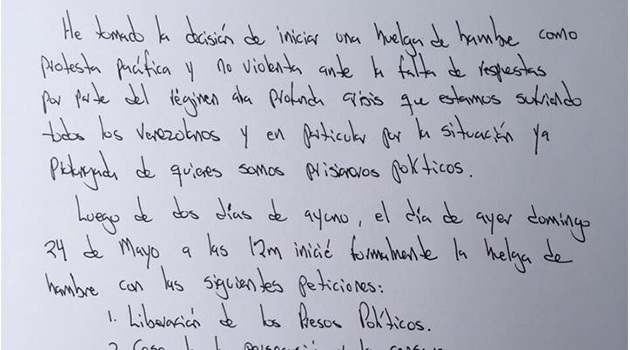 He tomado la decisión de iniciar una huelga de hambre como
protesta pacífica y no violenta ante la falta de respestas
por parte del régimen a la profunda crisis que estamos sufriendo
todos los venezolanos y en particular por la situación ya
prolongada de quienes somos prisioneros políticos.
Luego de dos días de ayuno, el día de ayer domingo
24 de Mayo a las 12m inicié formalmente la huelga de
hambre con las siguientes peticiones:
1. Liberación de los Presos Políticos.
2. Cese de la persecución